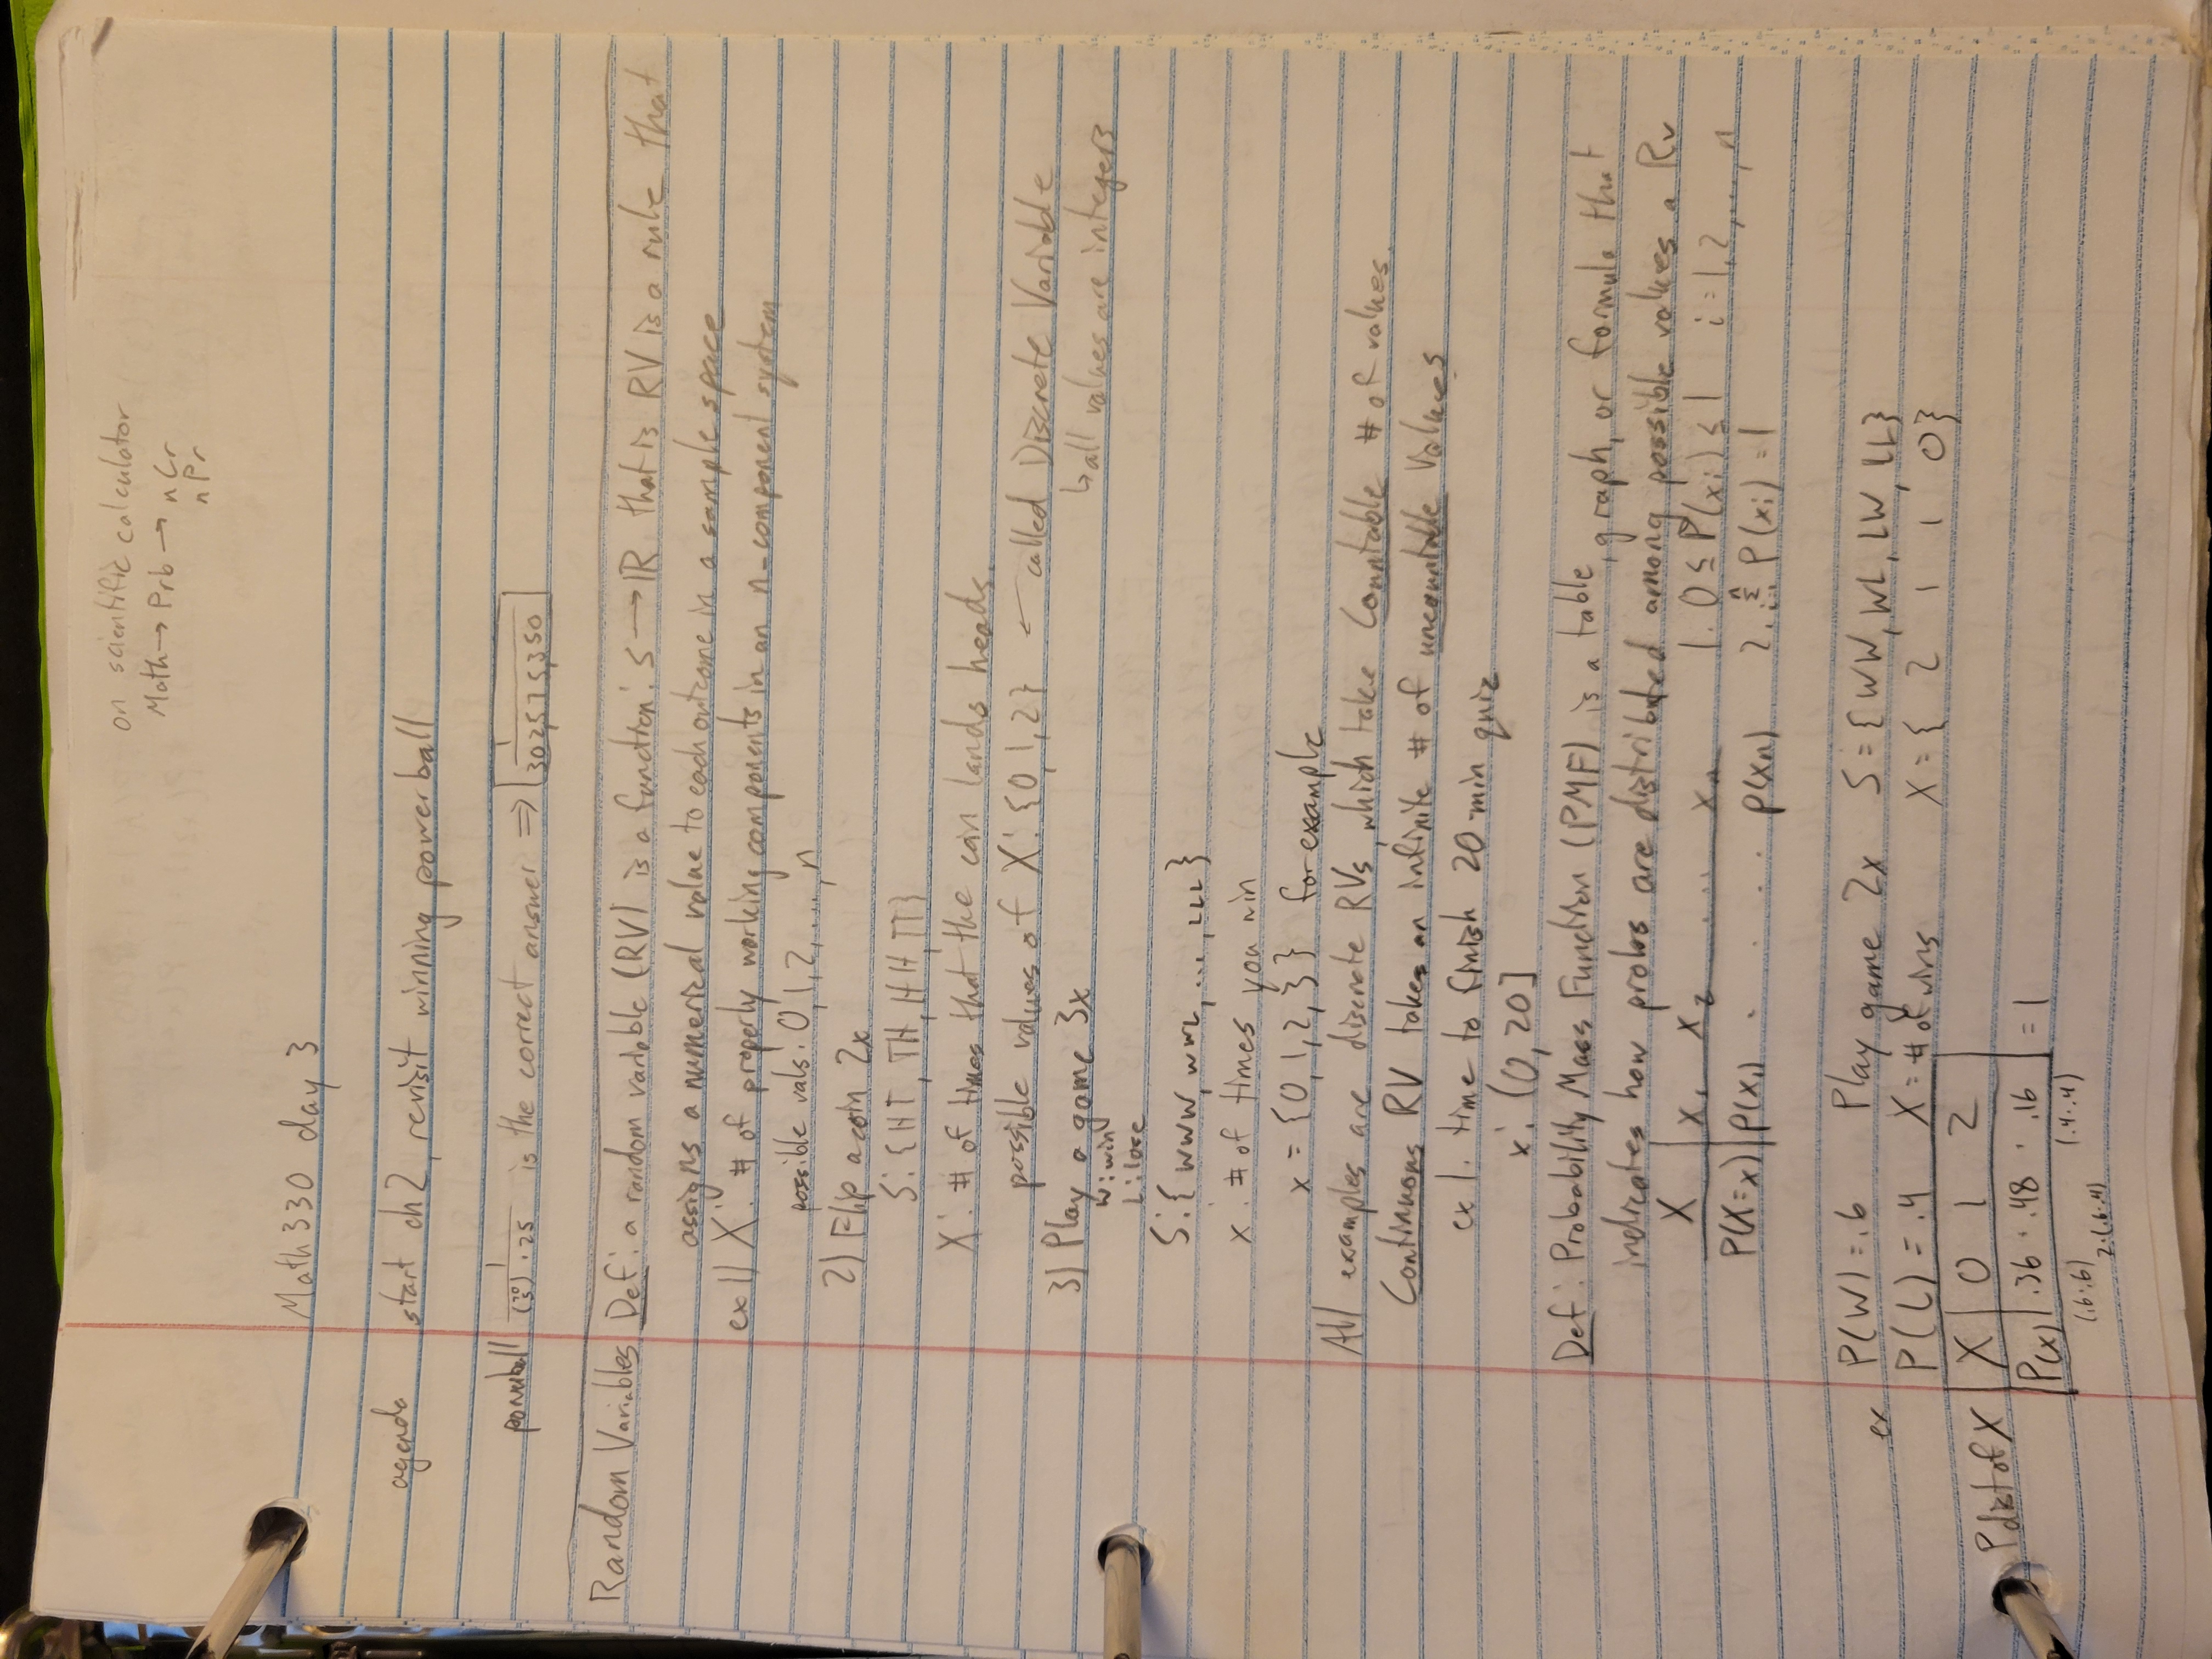 on scientific calculator
Math → Prb → nCr
nPr
Math 330 day 3
agenda start ch 2, revisit winning powerball
powerball 1/((70 5) · 25) is the correct answer ⇒ 1/302,575,350
Random Variables Def: a random variable (RV) is a function: S → ℝ that is RV is a rule that
assigns a numerical value to each outcome in a sample space
ex 1) X: # of properly working components in an n-component system
possible vals: 0, 1, 2, ..., n
2) Flip a coin 2x
S: {HT, TH, HH, TT}
X: # of times that the coin lands heads.
possible values of X: {0, 1, 2} ← called Discrete Variable
3) Play a game 3x ↳ all values are integers
W: win
L: lose
S: {WWW, WWL, ..., LLL}
x: # of times you win
x = {0, 1, 2, 3} for example
All examples are discrete RVs, which take Countable # of values.
Continuous RV takes an infinite # of uncountable Values
ex 1. time to finish 20 min quiz
x: (0, 20]
Def: Probability Mass Function (PMF) is a table, graph, or formula that
indicates how probs are distributed among possible values a Rv
X | x₁ x₂ .... xₙ 1. 0 ≤ P(xᵢ) ≤ 1 i = 1, 2, ..., n
P(X=x) | p(x₁) . . . . p(xₙ) 2. n Σ i=1 P(xᵢ) = 1
ex P(W) = .6 Play game 2x S = {WW, WL, LW, LL}
P(L) = .4 X = # of wins X = { 2 1 1 0}
P dist of X X | 0 1 2
P(x) | .36 · .48 · .16 = 1
(.6·.6) 2·(.6·.4) (.4·.4)